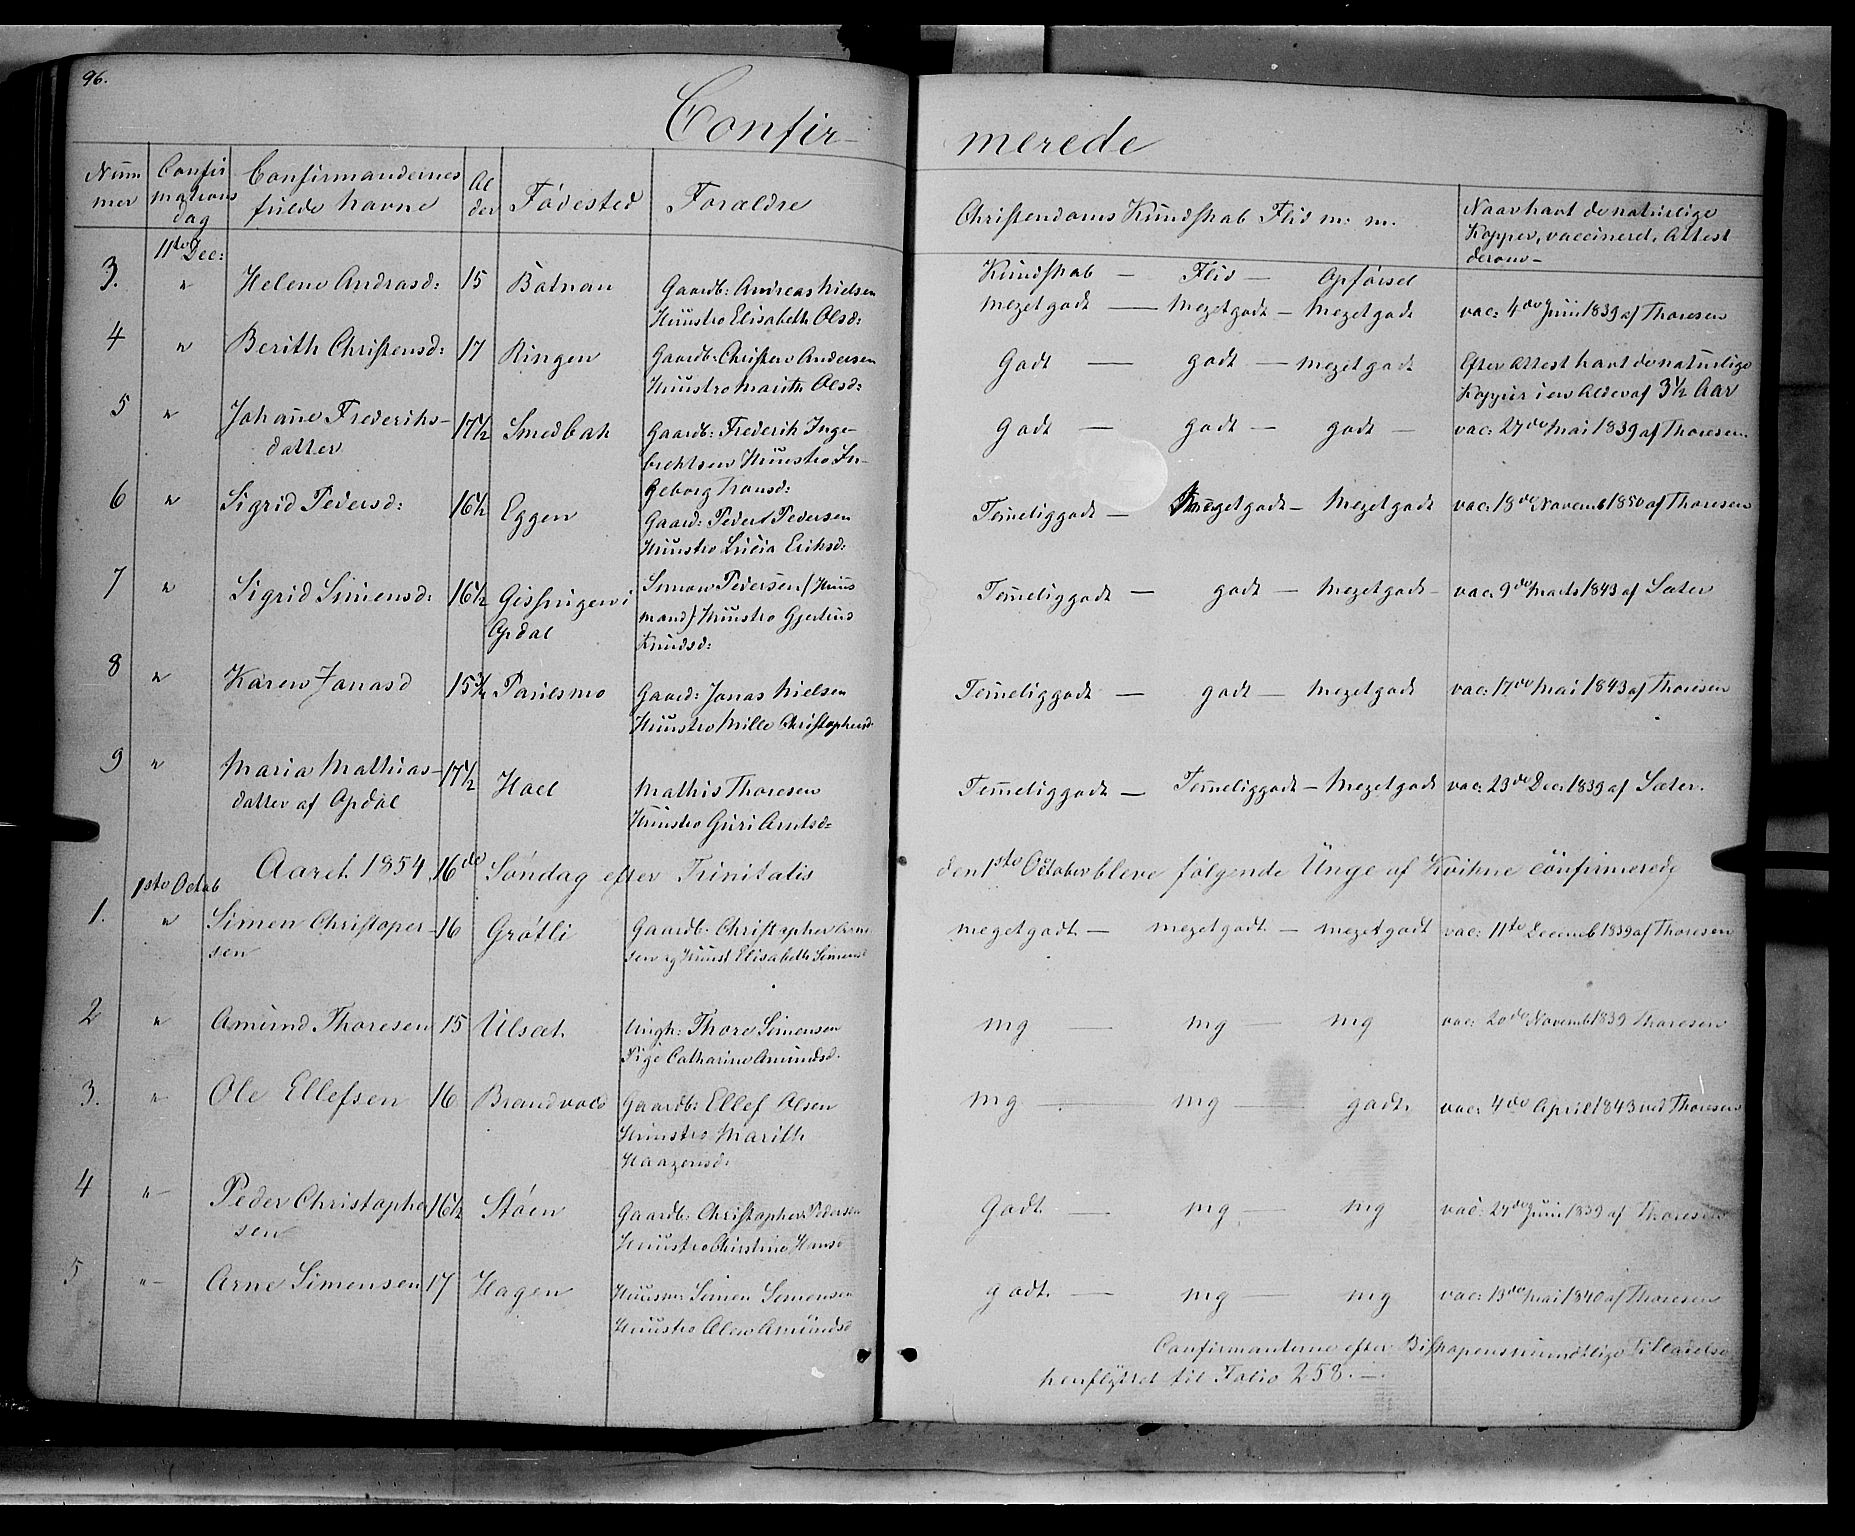 96.
Confir-
merede
Num
mer
Confir
mations
dag
Confirmandernes
fulde Navne
Al
der
Fødested
Forældre
Christendoms Kundskab Flid m. m.
Naar havt de naturlige
Kopper, vaccineret, Attest
derom -
11te Dec:
Kundskab — Flid — Opførsel
3. " Helene Andrasd: 15 Batnan
Gaardb: Andreas Nielsen
Hustro Elisabeth Olsd:
Megetgodt — Megetgodt — Megetgodt
vac: 4de Juni 1839 af Thoresen
4 " Berith Christensd: 17 Ringen
Gaardb: Christen Andersen
Hustro Marith Olsd:
Godt — godt — megetgodt
Efter Attest havt de naturlige
Kopper i en Alder af 3½ Aar
5 " Johane Frederiks-
datter
17½ Smedbak
Gaardb: Frederik Inge-
brektsen Hustro In-
geborg Hansd:
Godt — godt — godt —
vac: 27de Mai 1839 af Thoresen
6 " Sigrid Pedersd: 16½ Eggen
Gaard: Peder Pedersen
Hustro Lucia Eriksd:
Temeliggodt — Megetgodt — Megetgodt
vac: 13de Novemb 1850 af Thoresen
7 " Sigrid Simensd: 16½ Gissingen i
Opdal
Simon Pedersen (Huus
mand) Hustro Gjertrud
Knudsd:
Temeliggodt — godt — Megetgodt —
vac: 9de Marts 1843 af Sæter
8 " Karen Jonasd 15¾ Paulsmo
Gaard: Jonas Nielsen
Hustro Mille Christophersd
Temeliggodt — godt — Megetgodt
vac: 17de Mai 1843 af Thoresen
9 " Maria Mathias-
datter af Opdal
17½ Hoel
Mathis Thoresen
Hustro Guri Arntsd:
Temeliggodt — Temeliggodt — Megetgodt
vac: 23de Dec: 1839 af Sæter.
1ste Octob
Aaret 1854 16de Søndag efter Trinitatis den 1ste October bleve følgende Unge af Kvikne confirmerede
1. " Simen Christoper-
sen
16 Grøtli
Gaardb: Christopher Arne
sen og Hust Elisabeth Simensd
megetgodt — megetgodt — megetgodt
vac: 11te Decemb 1839 af Thoresen
2 " Amund Thoresen 15 Ulsæt
Ungk: Thore Simensen
Pige Catharina Amundsd.
mg — mg — mg
vac: 20de Novemb 1839 Thoresen
3. " Ole Ellefsen 16 Brandvold
Gaardb: Ellef Olsen
Hustro Marith
Haagensd:
mg — mg — godt
vac: 4de April 1843 ved Thoresen
4 " Peder Christopher
sen
16½ Støen
Gaardb: Christopher Pedersen
Hustro Christine Hansd
Godt — mg — mg
vac: 27de Juni 1839 af Thoresen
5 " Arne Simensen 17 Hagen
Huusm: Simen Simensen
Hustro Olea Amundsd
godt — mg — mg
vac: 13de Mai 1840 af Thoresen
Confirmanterne efter Biskopens mundtlige Tilladelse
henflyttet til Folio 258. —